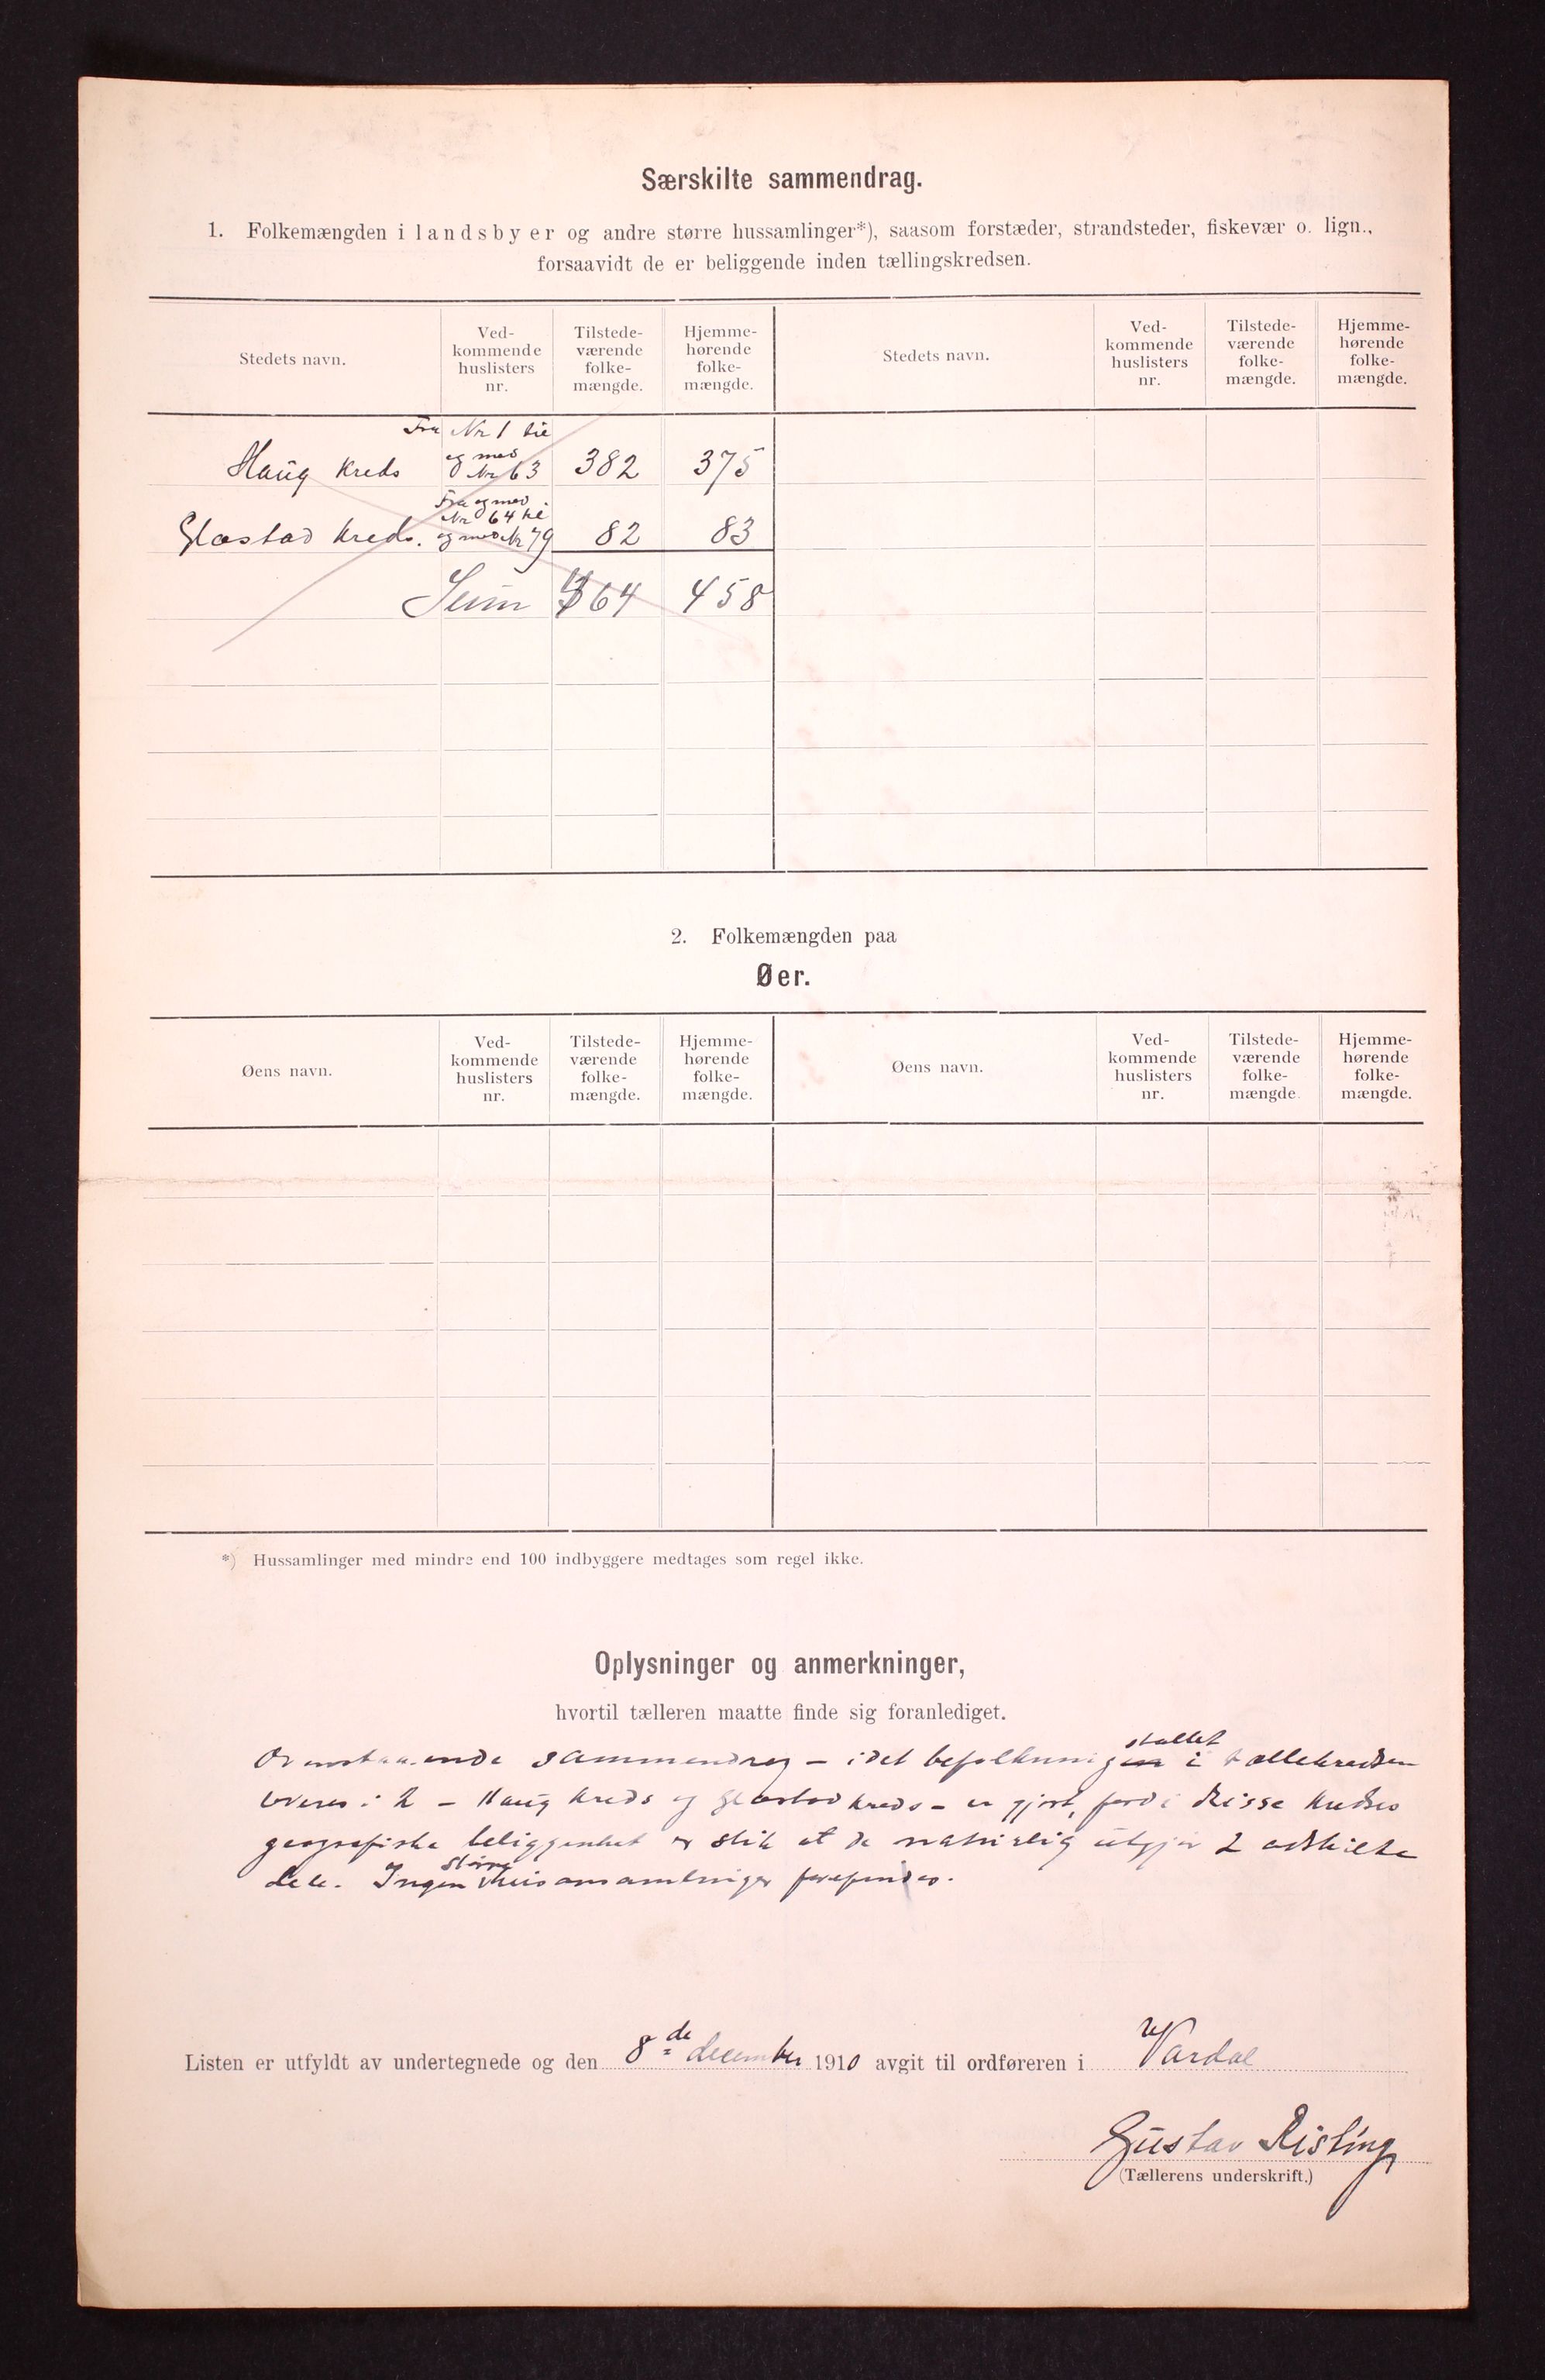 Særskilte sammendrag.
1. Folkemængden i landsbyer og andre større hussamlinger*), saasom forstæder, strandsteder, fiskevær o. lign.,
forsaavidt de er beliggende inden tællingskredsen.
Stedets navn. Ved-kommende huslisters nr. Tilstede-værende folke-mængde. Hjemme-hørende folke-mængde. Stedets navn. Ved-kommende huslisters nr. Tilstede-værende folke-mængde. Hjemme-hørende folke-mængde.
Fra Nr 1 til
Haug kreds og med Nr 63 382 375
Fra og med
Nr 64 til
Glæstad kreds. og med Nr 79 82 83
Sum 464 458
2. Folkemængden paa
Øer.
Øens navn. Ved-kommende huslisters nr. Tilstede-værende folke-mængde. Hjemme-hørende folke-mængde. Øens navn. Ved-kommende huslisters nr. Tilstede-værende folke-mængde Hjemme-hørende folke-mængde.
*) Hussamlinger med mindre end 100 indbyggere medtages som regel ikke.
Oplysninger og anmerkninger,
hvortil tælleren maatte finde sig foranlediget.
Ovenstaaende sammendrag – idet befolkningstallet i tællekredsen
i 2 – Haug kreds og Glæstad kreds – er gjort, fordi disse kredses
geografiske beliggenhet er slik at de naturlig utgjør 2 adskilte
dele. Ingen større husansamlinger forefindes.
Listen er utfyldt av undertegnede og den 8de december 1910 avgit til ordføreren i Vardal
Gustav Risting
(Tællerens underskrift.)